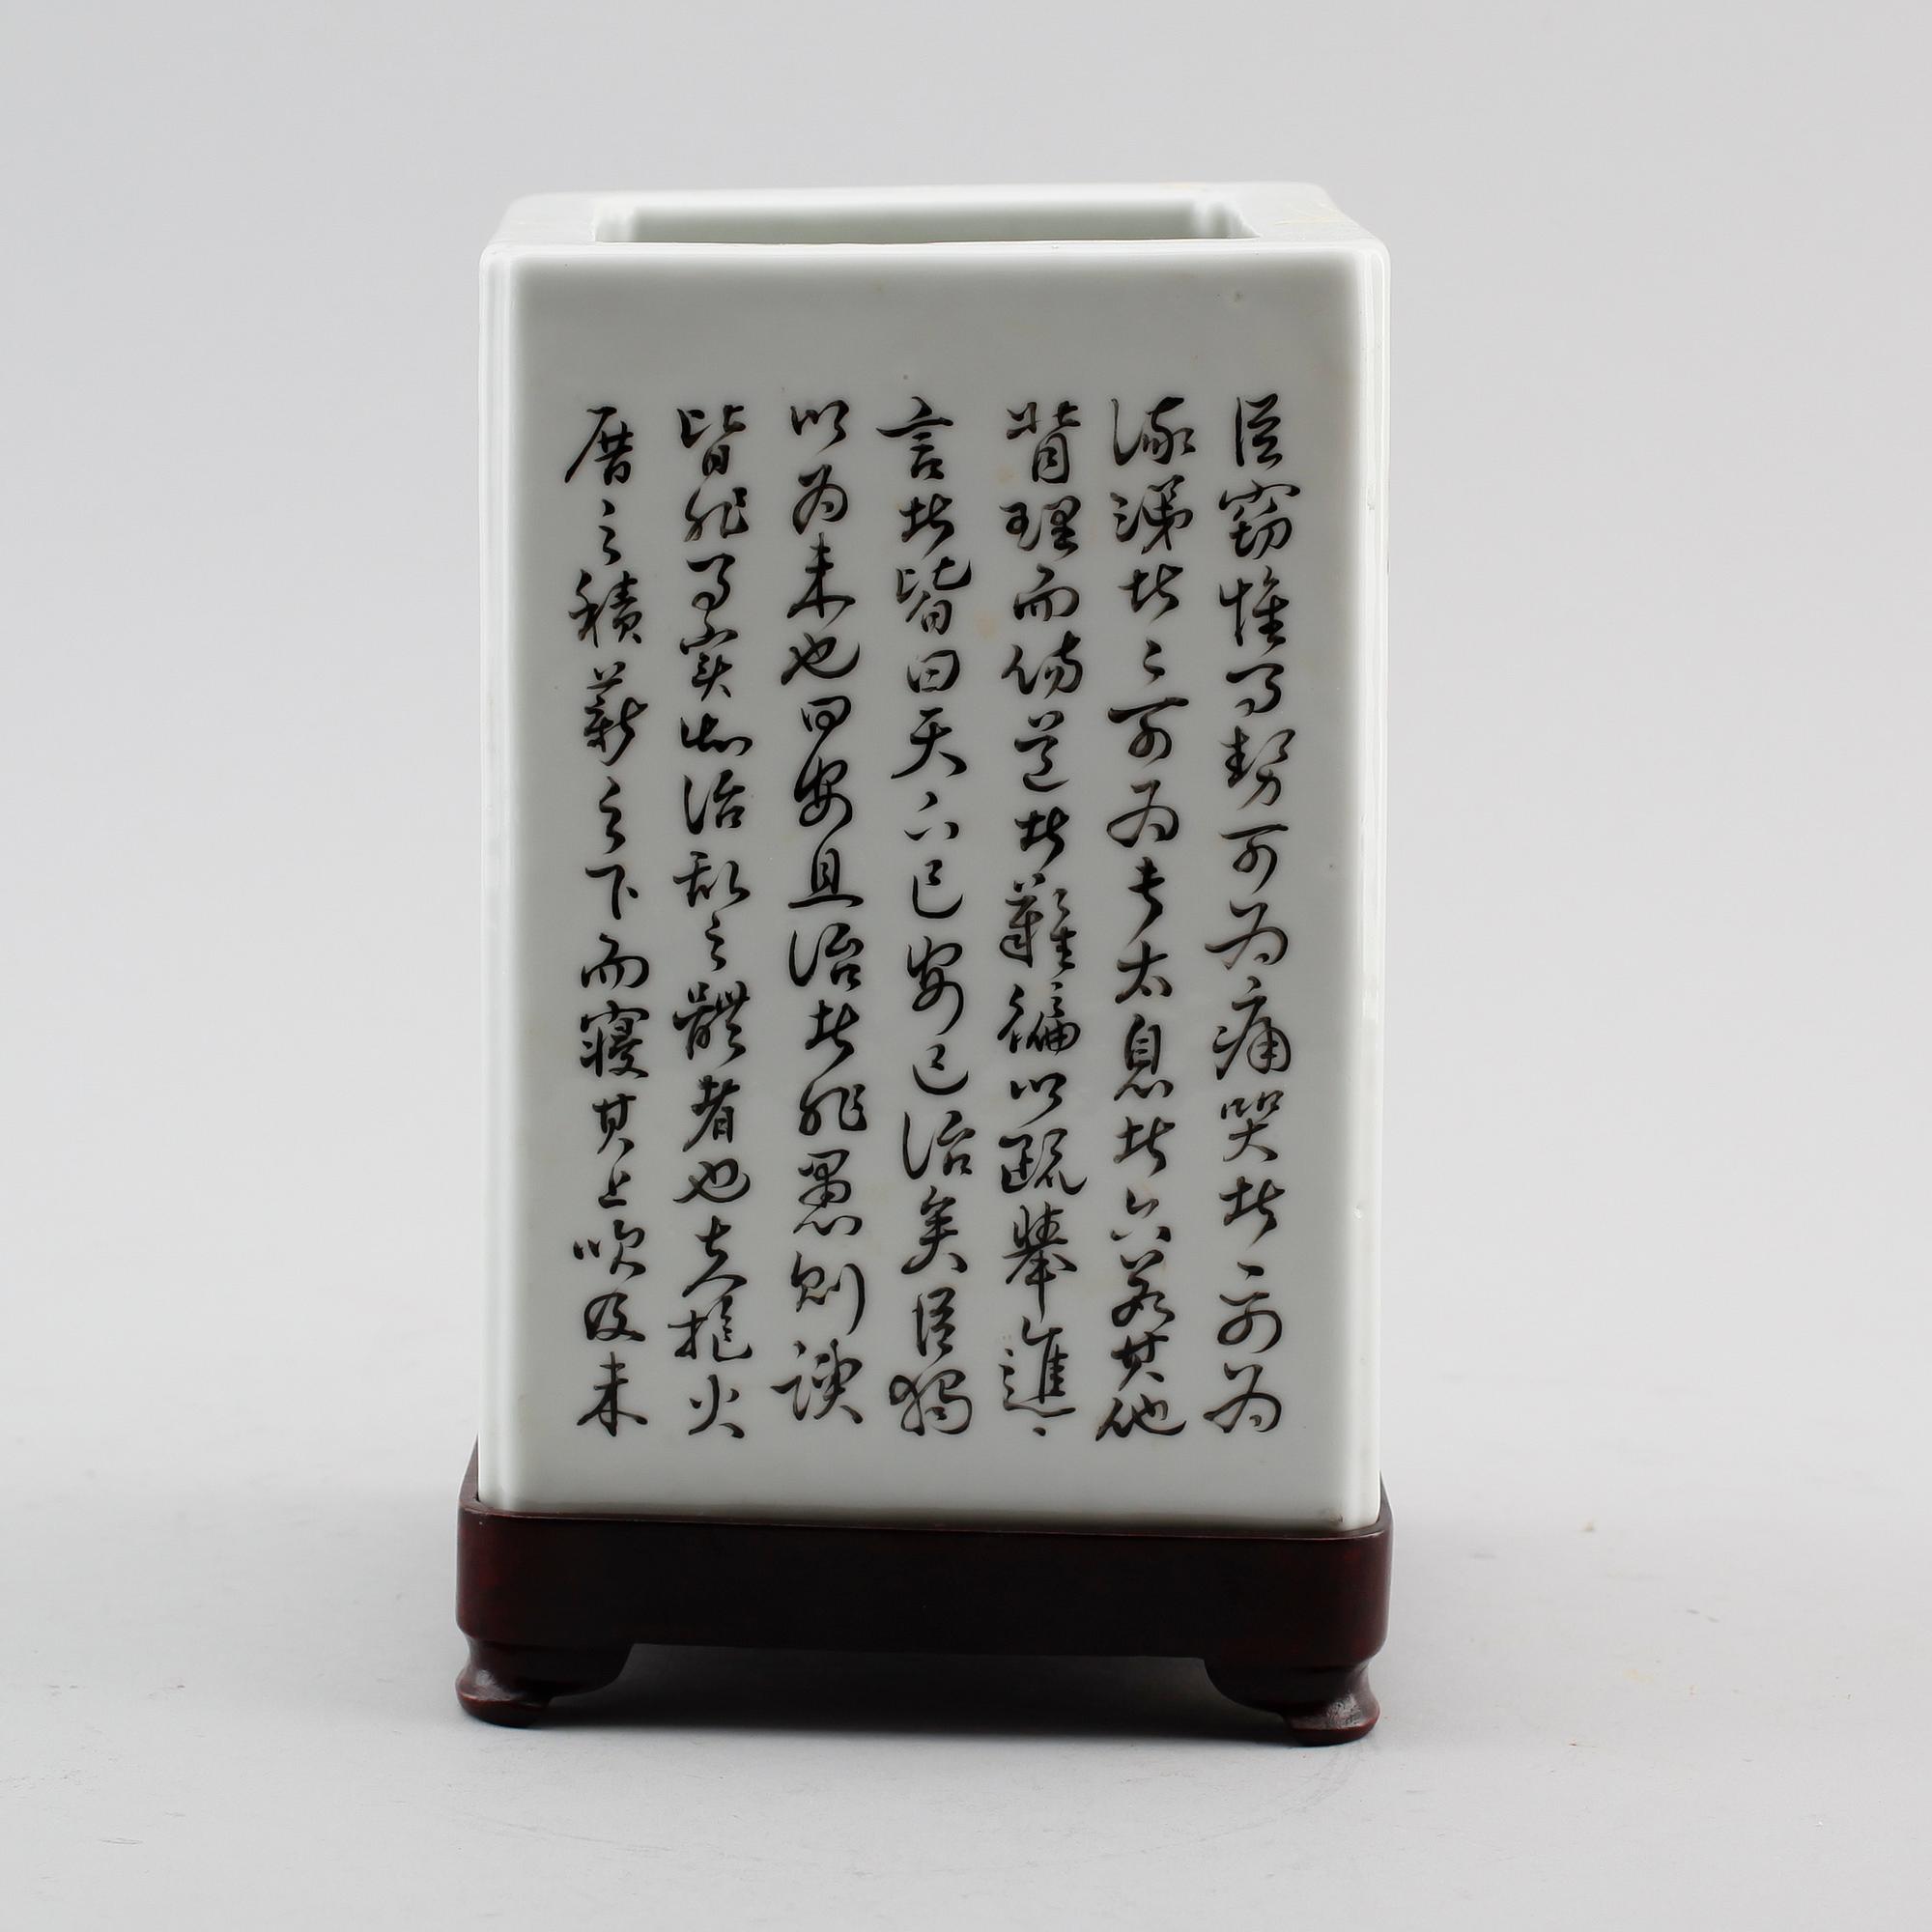 臣竊惟事勢可為痛哭者一可為
流涕者二可為長太息者六若其他
背理而傷道者難徧以疏舉進
言者皆曰天下已安已治矣臣獨
以為未也曰安且治者非愚則諛
皆非事實知治乱之體者也夫抱火
厝之積薪之下而寢其上吹及未